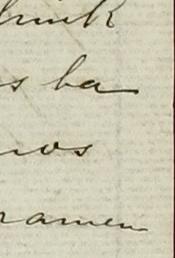 s ba
nos
ramen